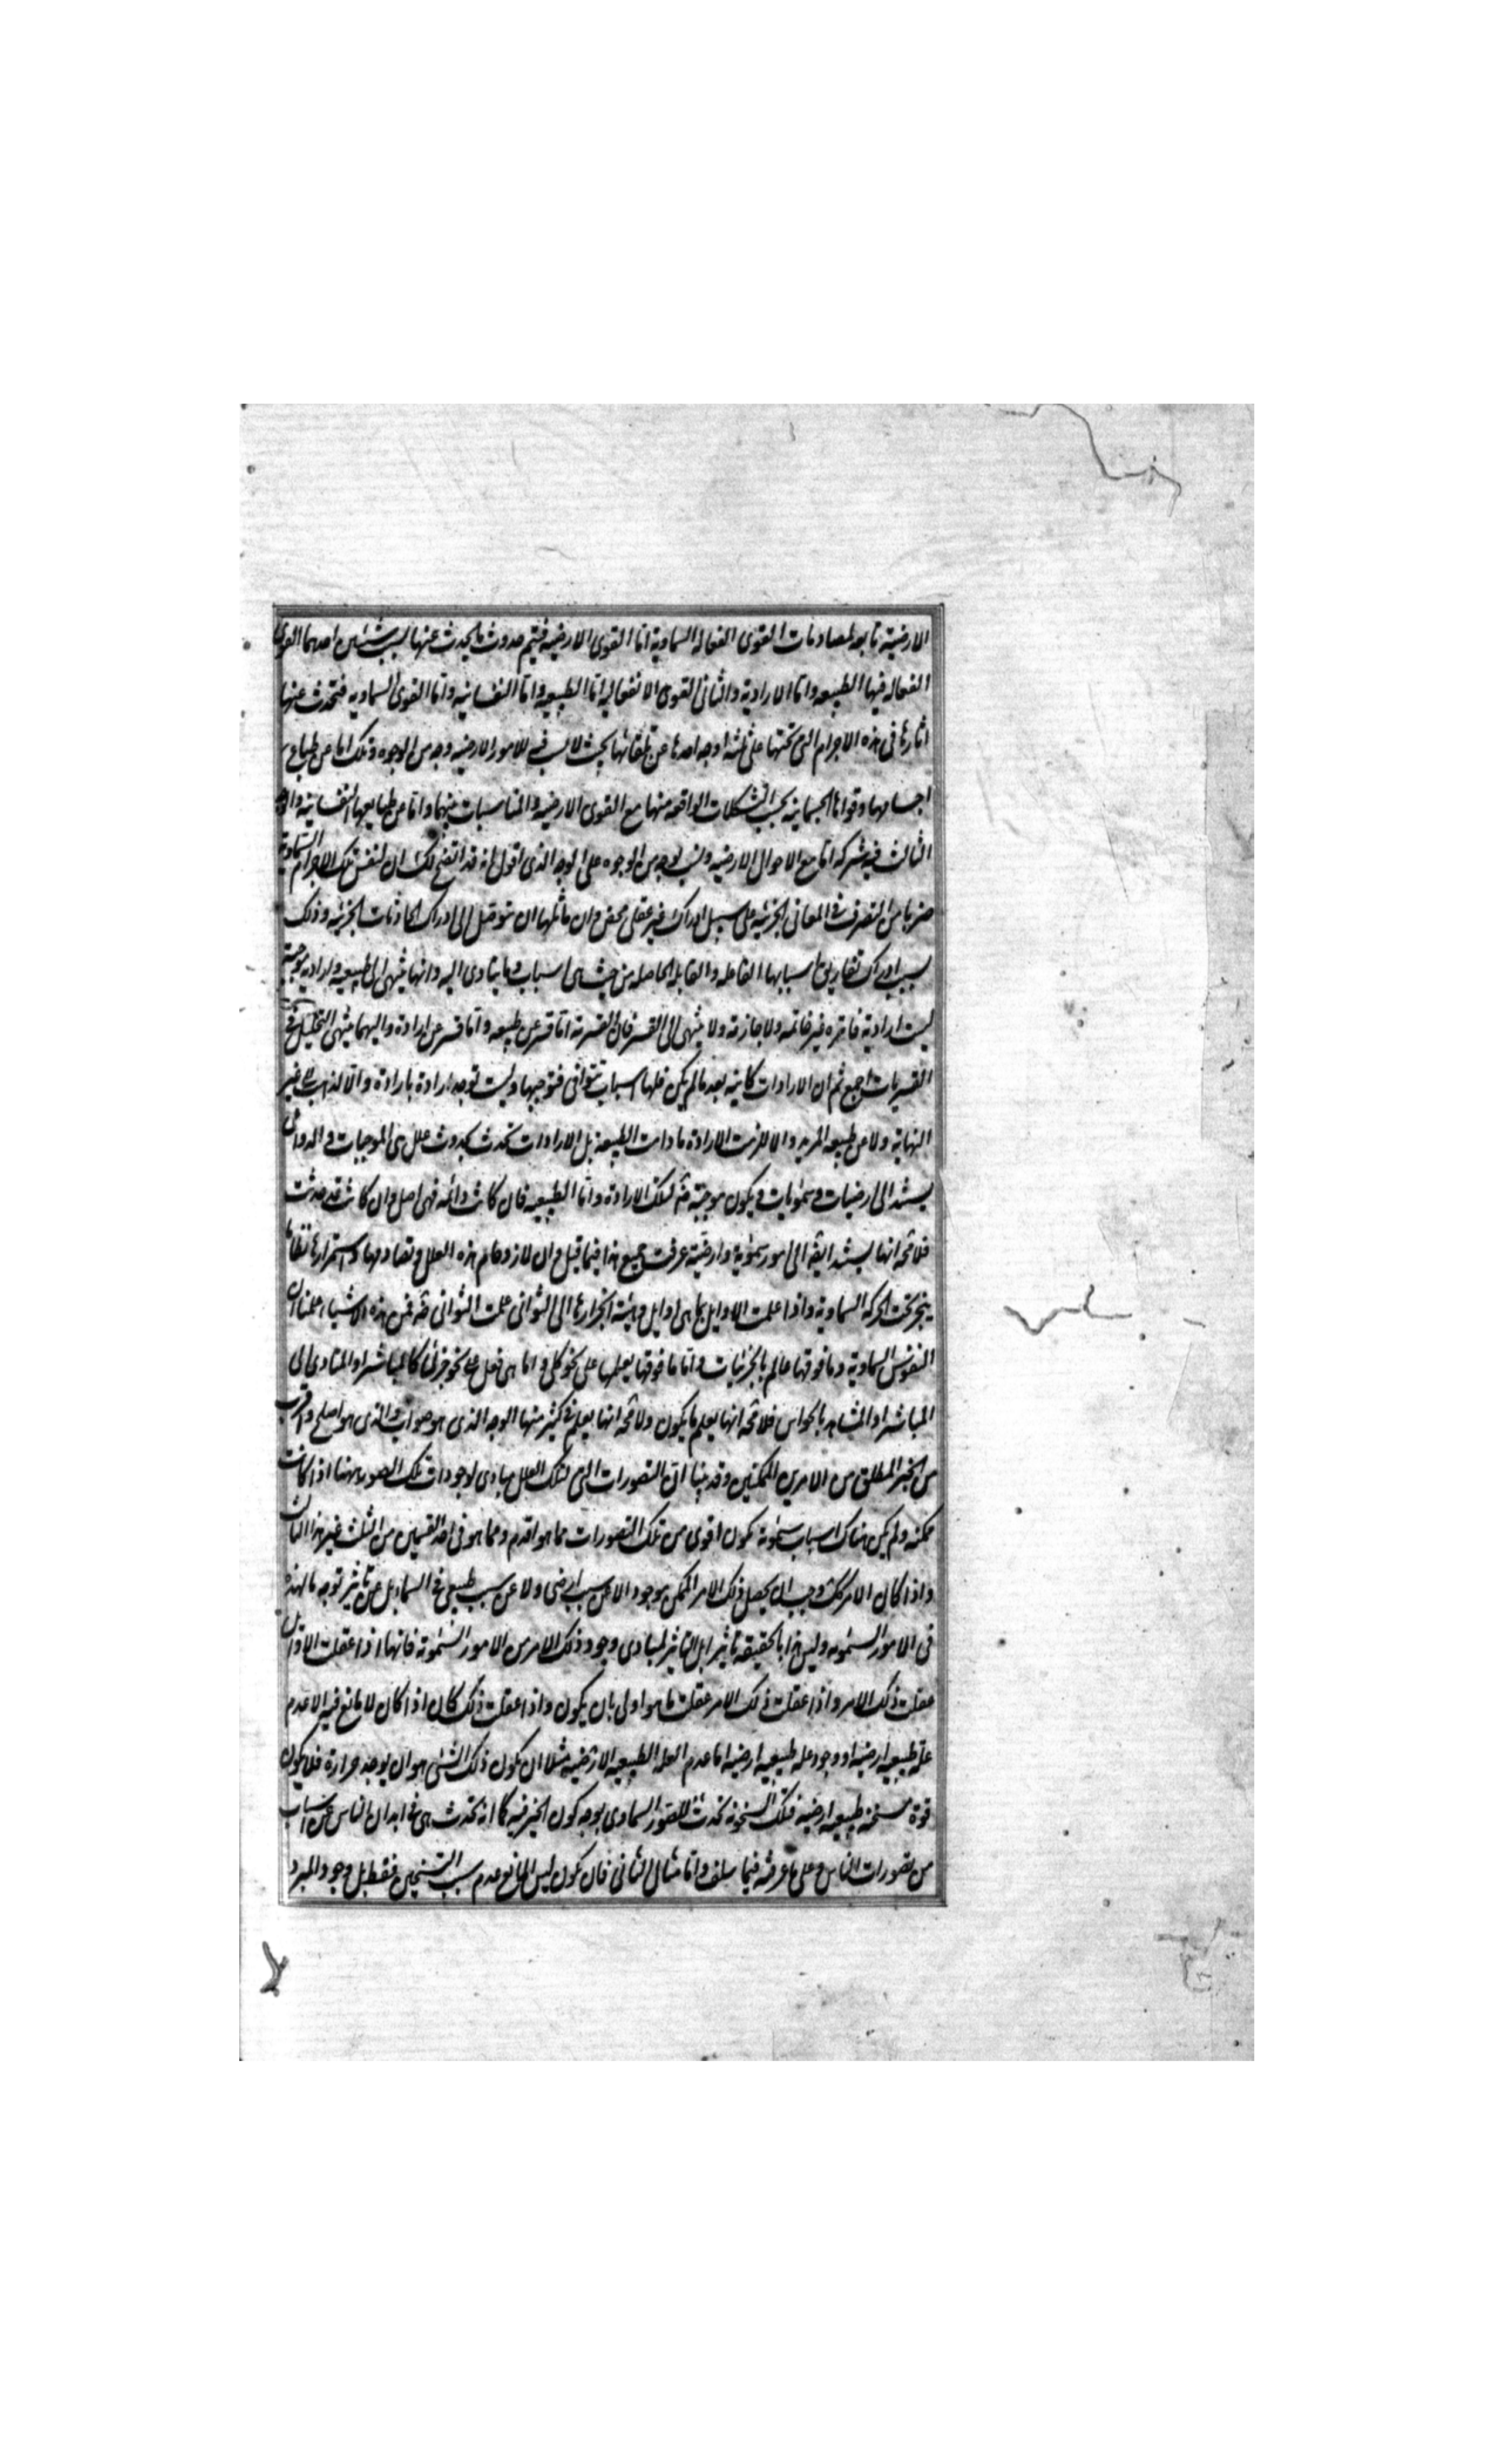 الارضية تابعه لمصادمات القوى الفعاله السماوية اما القوى الارضيه فيتم حدوث ما يحدث عنها بسبب شيئين احدهما القوى
الفعاله فيها اما الطبيعه واما الارادية والثانى القوى الانفعاليه اما الطبيعيه واما النفسانيه واما القوى السماويه فتحدث عنها
اثارها فى هذه الاجرام التى تحتها على ثلثه اوجه احدها من تلقائها بحيث لا سبب فيه للامور الارضيه وجه من الوجوه وتلك اما عن طبايع
اجسامها وقواها الجسمانيه بحسب التشكلات الواقعه منها مع القوى الارضيه والمناسبات بينهما واما عن طبايعها النفسانيه والوجه
الثالث فيه شركه اما مع الاحوال الارضيه وتسبب بوجه من الوجوه على الوجه الذى اقول انه قد اتضح لك ان لنفس تلك الاجرام السماوية
ضربا من التصرف فى المعانى الجزئيه على سبيل ادراك غير عقلى محض وان مثلها ان تتوصل الى ادراك الحادثات الجزئيه وذلك
بسبب ادراك تفاريق اسبابها الفاعله والقابله الحاصله من حيث هى اسباب وما يتادى اليه وانها تنتهى الى طبيعيه وارادية موجبة
ليست ارادية فاتره غير خاتمه ولا جازمة ولا تنتهى الى القسر فان القسرية اما قسر عن طبيعه واما قسر عن ارادة واليهما ينتهى التحليل فى
القسريات اجمع ثم ان الارادات كاينه بعد ما لم يكن فلها اسباب تتوافى فتوجبها وليست توجد ارادة بارادة والا لذهب الى غير
النهاية ولا عن طبيعه المريد والا للزمت الارادة ما دامت الطبيعة بل الارادات تحدث بحدوث علل هى الموجبات والدواعى
يستند الى ارضيات وسمويات ويكون موجبة ثمه لتلك الارادة واما الطبيعيه فان كانت دائمه فهى اصل وان كانت قد حدثت
فلا محة انها يستند ايضه الى امور سمويه وارضيه عرفت جميع هذا فيما قبل وان لازدحام هذه العلل وتصادمها واستمرارها نظاما
ينجر تحت الحركه السماوية واذا علمت الاوايل بما هى اوايل وهيئة انجرارها الى الثوانى علمت الثوانى ثمه فمن هذه الاشياء علمنا ان
النفوس السماوية وما فوقها عالم بالجزئيات واما ما فوقها يعلمها على نحو كلى واما هى فعلى نحو جزئى كالمباشر او المتادى الى
المباشر او المشاهد بالحواس فلا محة انها يعلم ما يكون ولا محة انها يعلم فى كثير منها الوجه الذى هو صواب والذى هو اصلح واقرب
من الخير المطلق من الامرين الممكنين وقد بينا ان التصورات التى لتلك العلل مبادى لوجودات تلك الصور ههنا اذا كانت
ممكنه ولم يكن هناك اسباب سماوية تكون اقوى من تلك التصورات مما هو اقدم ومما هو فى احد القسمين من الثلث غير هذا الثالث
واذا كان الامر كك وجب ان يحصل ذلك الامر الممكن موجودا لا عن سبب ارضى ولا عن سبب طبيعى فى السماء بل عن تاثير بوجه ما لهذه
فى الامور السمويه وليس هذا بالحقيقه تاثيرا بل التاثير لمبادى وجود ذلك الامر من الامور السموية فانها اذا عقلت الاوايل
عقلت ذلك الامر واذا عقلت ذلك الامر عقلت ما هو اولى بان يكون واذا عقلت ذلك كان اذا كان لا مانع فيه الا عدم
عله طبيعيه ارضيه او وجود عله طبيعيه ارضيه اما عدم العله الطبيعيه الارضيه مثلا ان يكون ذلك الشئ هو ان يوجد حرارة فلا يكون
قوة مسخنه طبيعيه ارضيه فتلك السخونه تحدث للتصور السماوى بوجه كون الخير فيه كما انه تحدث هى فى ابدان الناس عن اسباب
من تصورات الناس وعلى ما عرفته فيما سلف واما مثال الثانى فان يكون ليس المانع عدم سبب التسخين فقط بل وجود المبرد